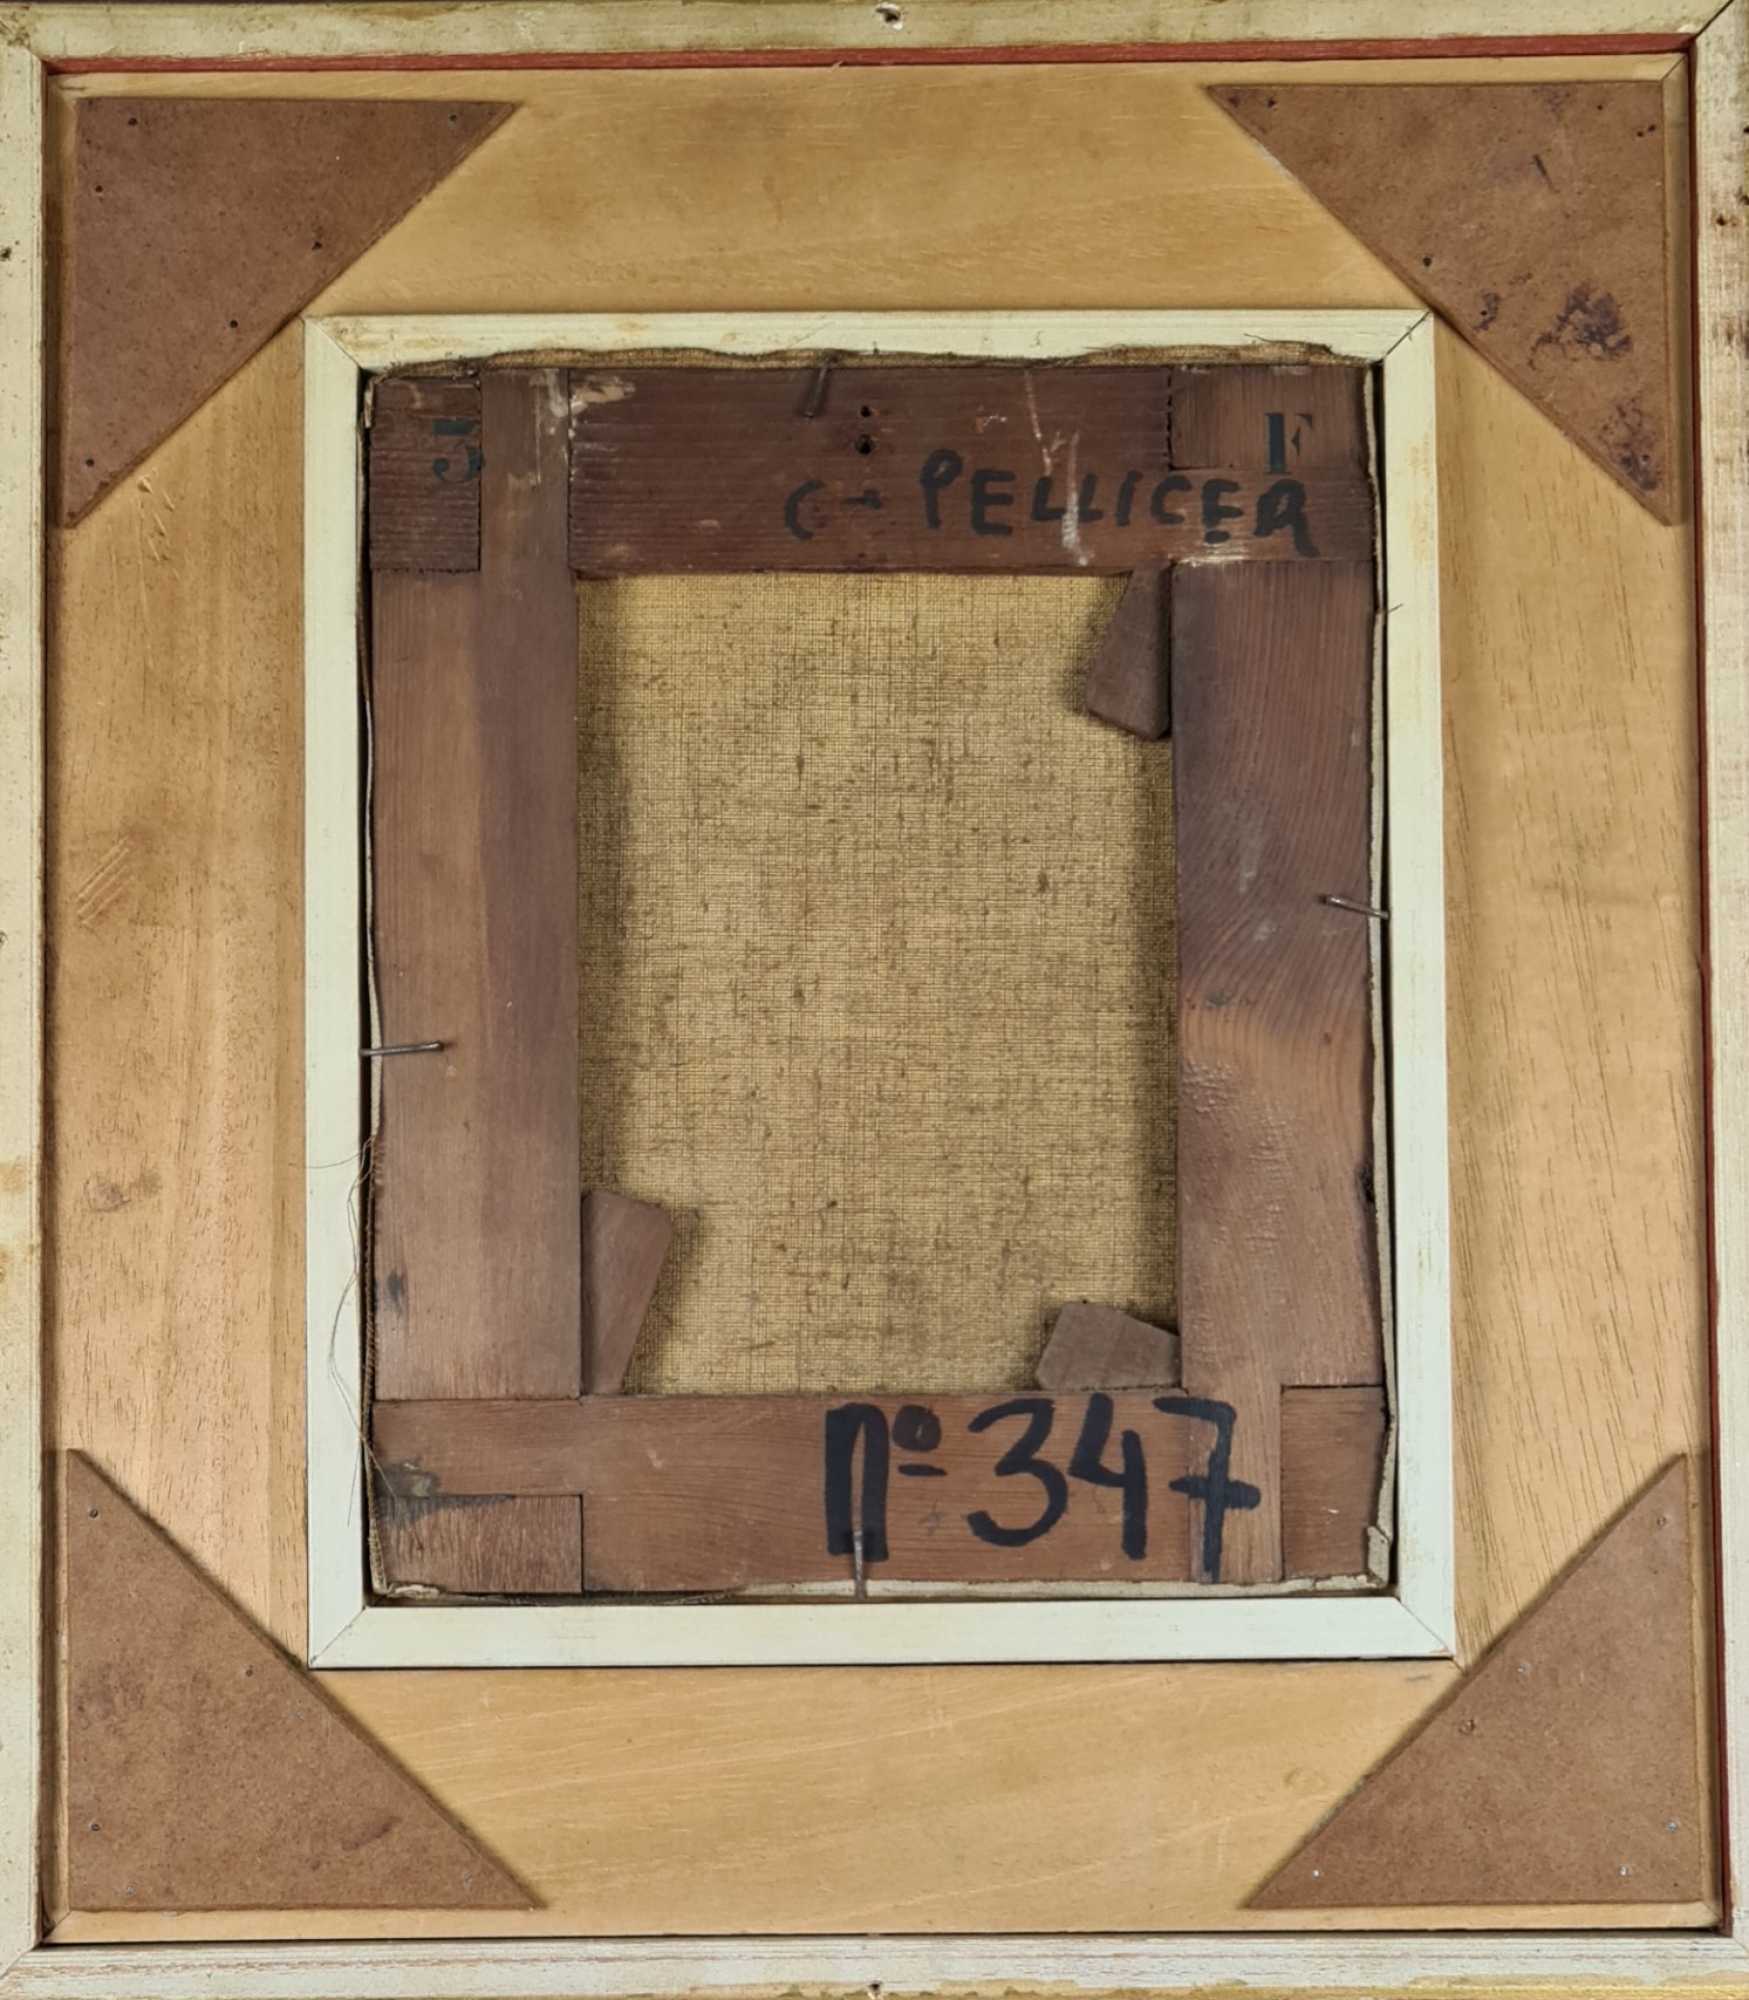 3 F
C- PELLICER
nº 347